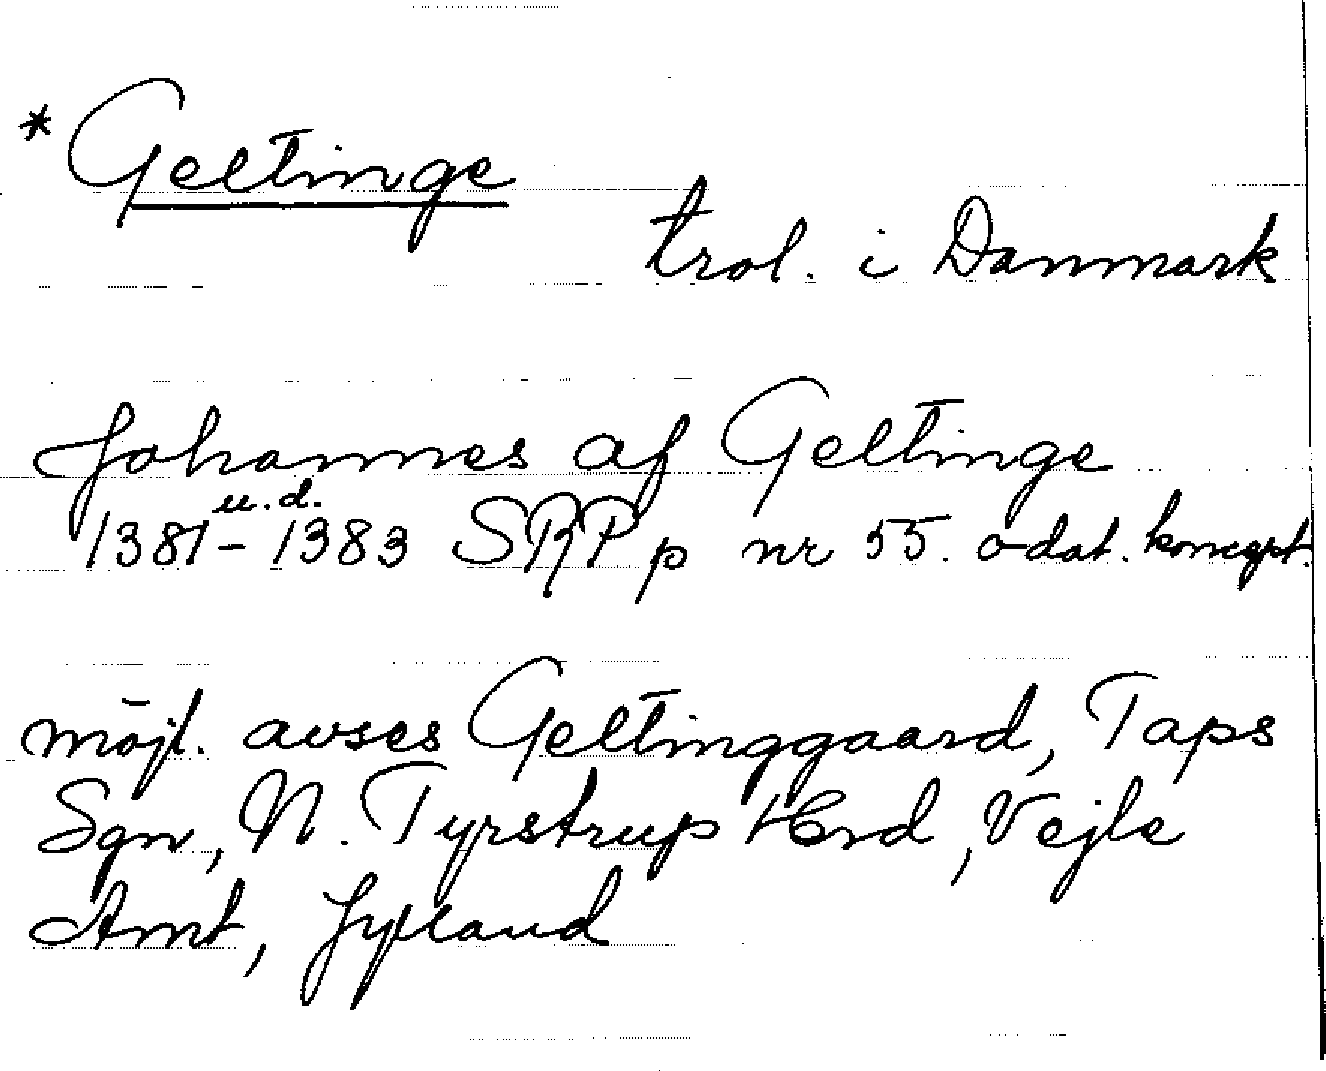 * Geltinge
trol. i Danmark
Johannes af Geltinge
u.d.
1381-1383 SRPp nr 55. odat. koncept.
möjl. avses Geltinggaard, Taps
Sgn, N. Tyrstrup Hrd, Vejle
Amt, Jylland